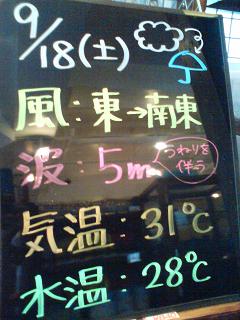 9/18(土)
風:東→南東
波:5m うねりを伴う
気温:31℃
水温:28℃